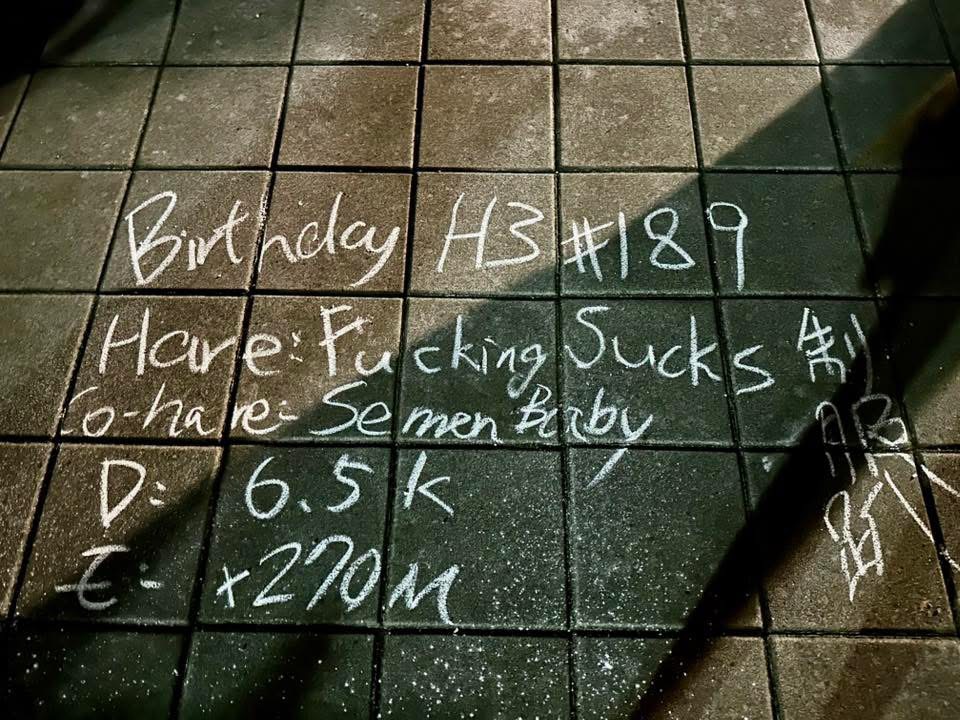 Birthday H3 #189
Hare: Fucking Sucks 制
Co-hare: Semen Baby 服
D: 6.5 k
E: +270M